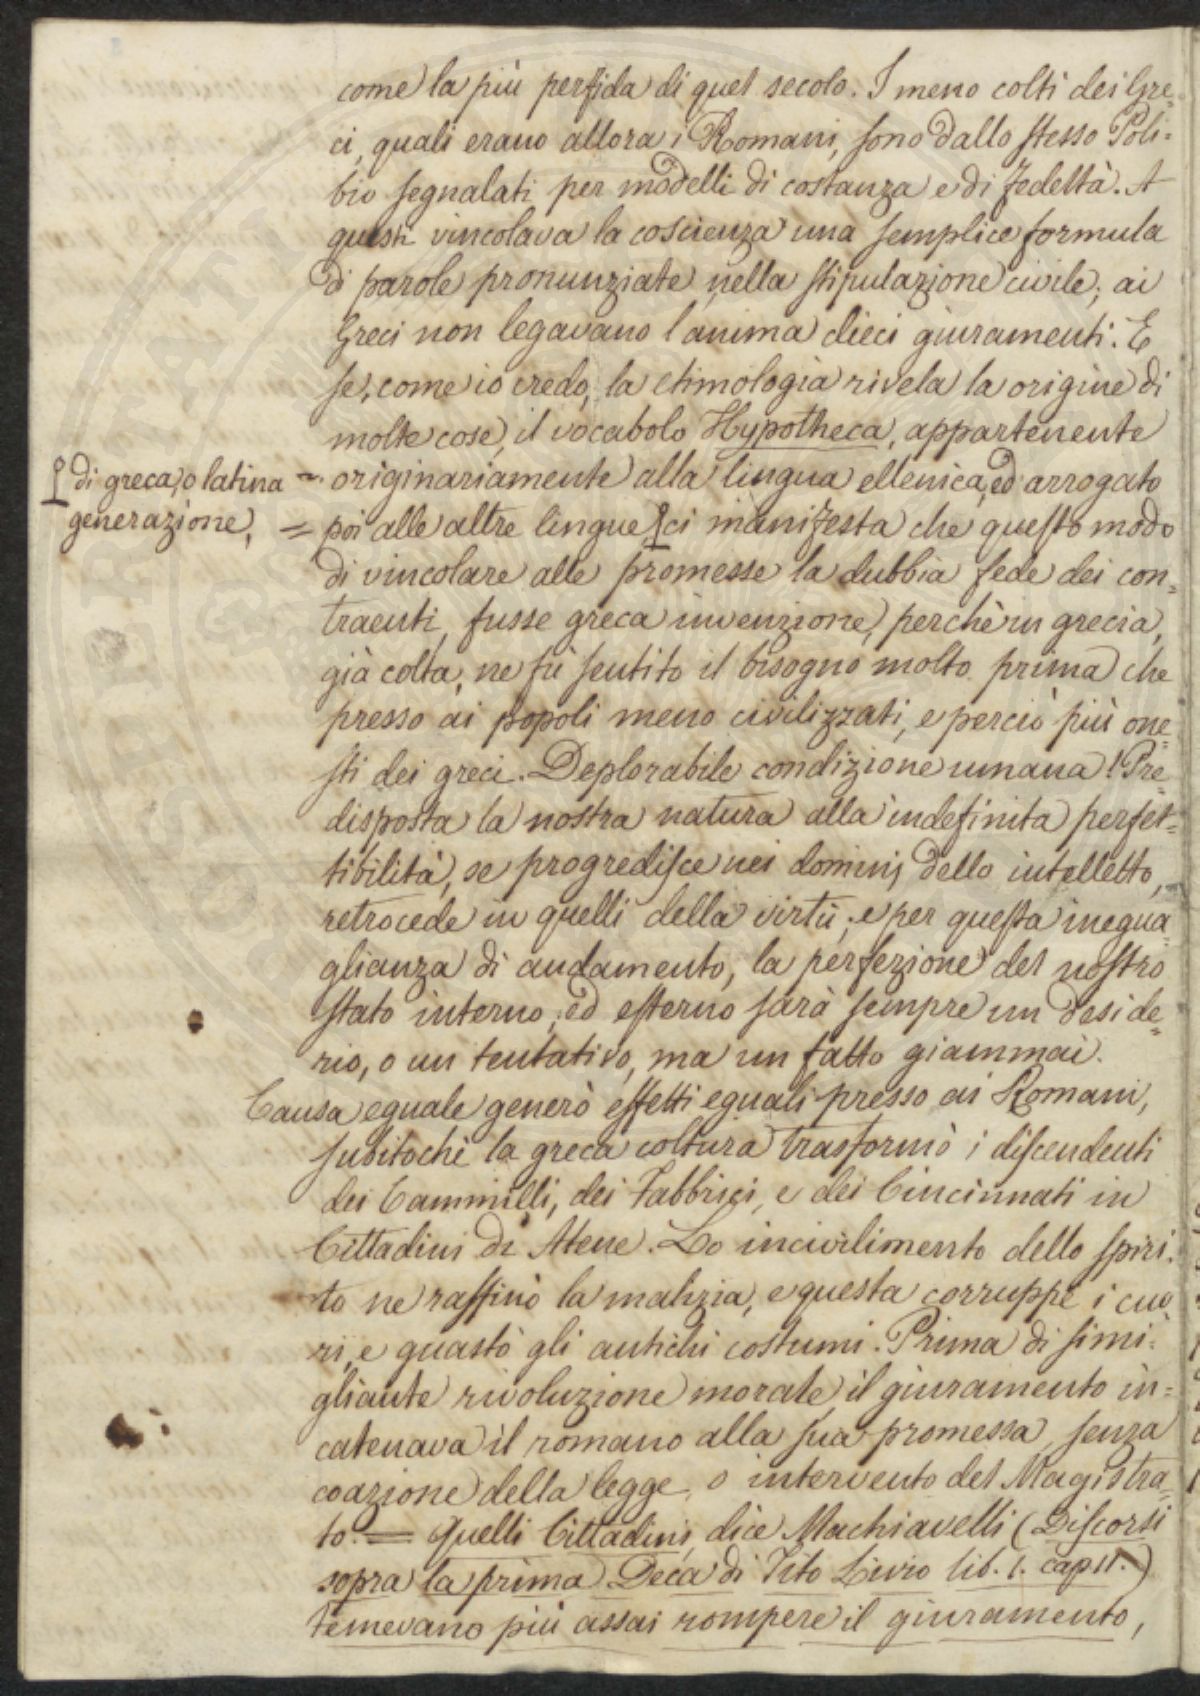 come la più perfida di quel secolo. I meno colti dei Gre=
ci, quali erano allora i Romani, sono dallo stesso Poli=
bio segnalati per modelli di costanza e di fedeltà. A
questi vincolava la coscienza una semplice formula
di parole pronunziate nella stipulazione civile; ai
Greci non legavano l'anima dieci giuramenti. E
se, come io credo, la etimologia rivela la origine di
molte cose, il vocabolo Hypotheca, appartenente
originariamente alla lingua ellenica, ed arrogato
poi alle altre lingue ci manifesta che questo modo
di greca, o latina =
generazione, =
di vincolare alle promesse la dubbia fede dei con=
traenti, fusse greca invenzione, perchè in grecia,
già colta, ne fù sentito il bisogno molto prima che
presso ai popoli meno civilizzati, e perciò più one=
sti dei greci. Deplorabile condizione umana! Pre=
disposta la nostra natura alla indefinita perfet=
tibilità, se progredisce nei dominj dello intelletto,
retrocede in quelli della virtù; e per questa inegua=
glianza di andamento, la perfezione del nostro
stato interno, ed esterno sarà sempre un deside=
rio, o un tentativo, ma un fatto giammai.
Causa eguale generò effetti eguali presso ai Romani,
subitochè la greca coltura trasformò i discendenti
dei Cammilli, dei Fabbrizi, e dei Cincinnati in
Cittadini di Atene. Lo incivilimento dello spiri=
to ne raffinò la malizia, e questa corruppe i cuo
ri, e guastò gli antichi costumi. Prima di simi=
gliante rivoluzione morale, il giuramento in=
catenava il romano alla sua promessa, senza
coazione della legge, o intervento del Magistra=
to. = Quelli Cittadini, dice Machiavelli (Discorsi
sopra la prima Deca di Tito Livio lib. 1. cap 11.)
temevano più assai rompere il giuramento,